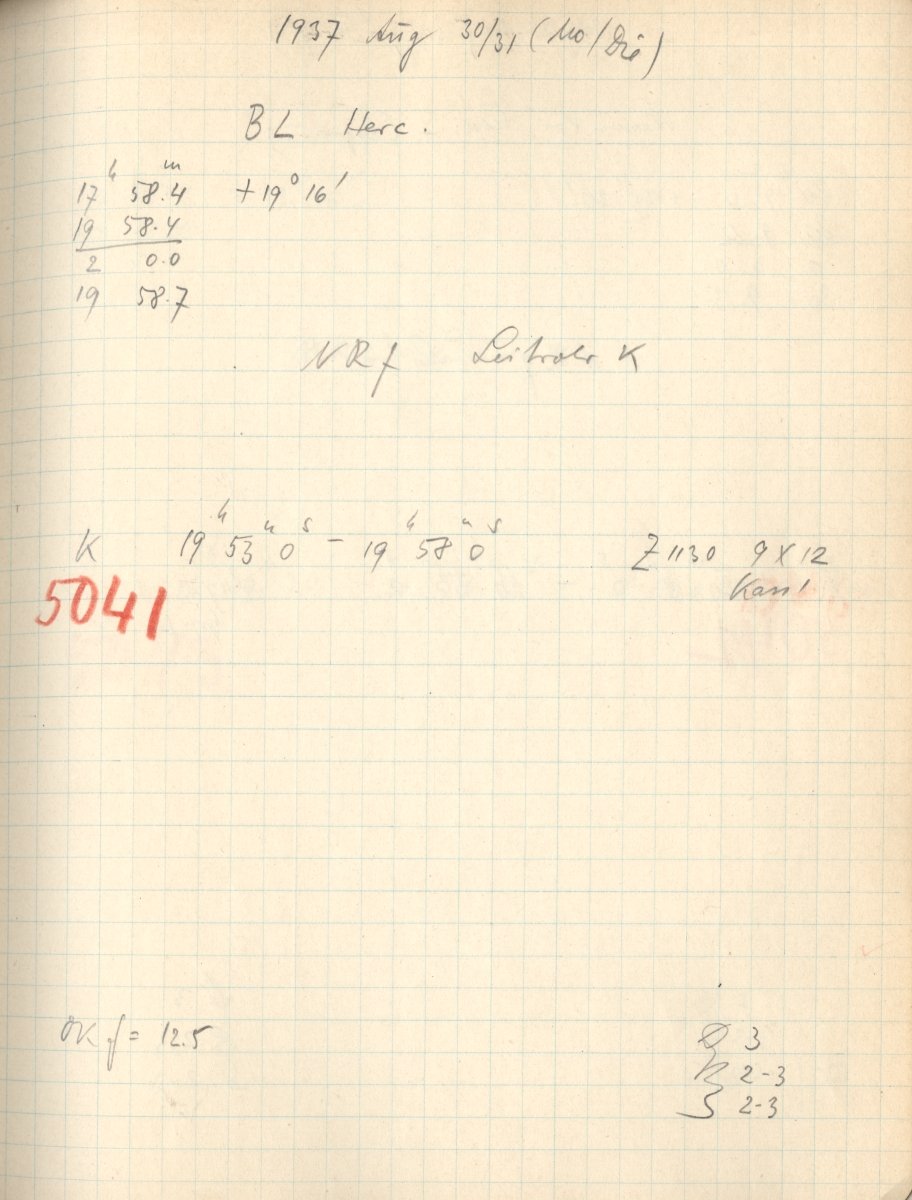 1937 Aug 30/31 (Mo/Die)
BL Herc.
17ʰ 58.4ᵐ +19° 16'
19 58.4
2 0.0
19 58.7
NRf Leitrohr K
K 19ʰ 53ᵐ 0ˢ - 19ʰ 58ᵐ 0ˢ Z 1130 9x12
5041 Kass!
f = 12.5
3
R 2-3
S 2-3